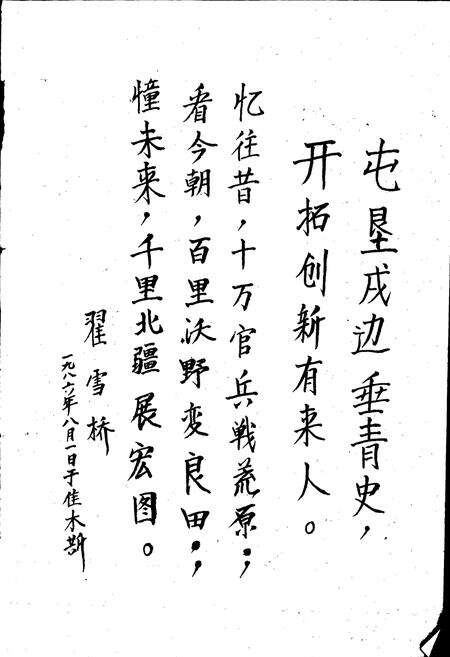 屯垦戍边垂青史，
开拓创新有来人。
忆往昔，十万官兵戰荒原；
看今朝，百里沃野变良田；
憧未来，千里北疆展宏图。
翟雪桥
一九八六年八月一日于佳木斯